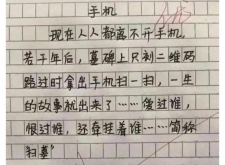 手机
现在人人都离不开手机。
若干年后，墓碑上只刻二维码
路过时拿出手机扫一扫，一生
的故事就出来了……爱过谁，
恨过谁，还牵挂着谁……简称
扫墓"